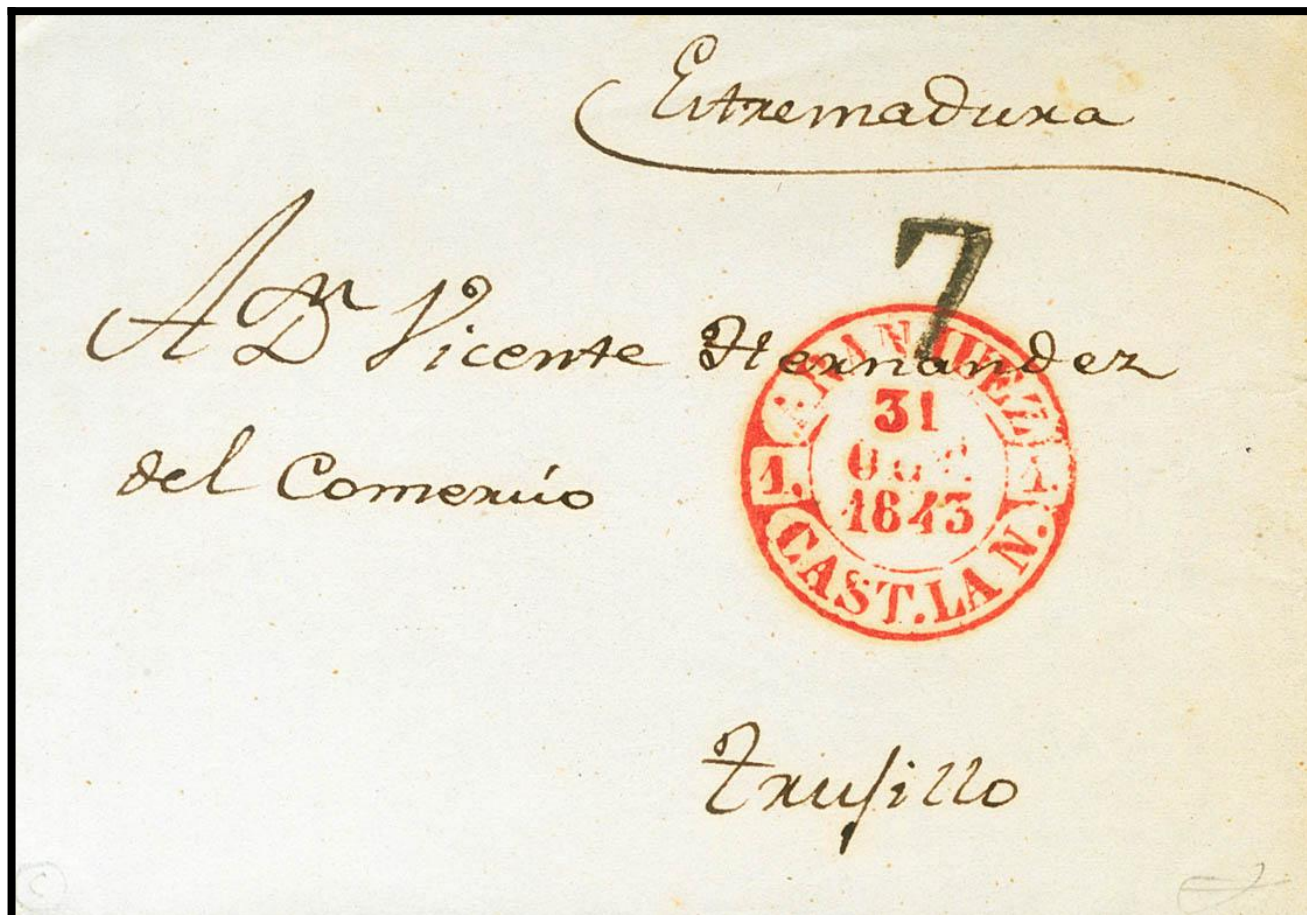 Extremadura
7
A Dn Vicente Hernandez
del Comercio
ARANJUEZ
31
1843
1. 1.
CAST. LA N.
Trujillo